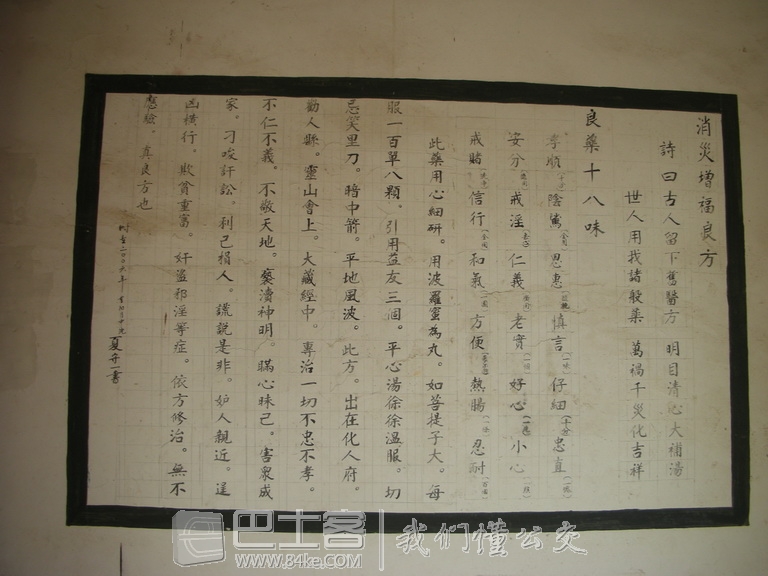 消災增福良方
詩曰古人留下舊醫方 明目清心大補湯
世人用找諸般藥 萬禍千災化吉祥
良藥十八味
孝順(十分) 陰騭(全用) 恩惠 慎言(一味) 仔細(十分) 忠直(一塊)
安分 戒淫 仁義 老實(一個) 好心(一片) 小心
戒賭(洗淨) 信行(全用) 和氣(一團) 方便 熱腸(一條) 忍耐(百倍)
此藥用心細研。用波羅蜜為丸。如菩提子大。每
服一百單八顆。引用益友三個。平心湯徐徐溫服。切
忌笑里刀。暗中箭。平地風波。此方。出在化人府。
勸人縣。靈山會上。大藏經中。專治一切不忠不孝。
不仁不義。不敬天地。褻瀆神明。瞞心昧己。害衆成
家。刁唆訐訟。利己損人。謊說是非。妒人親近。逞
凶橫行。欺貧重富。奸盜邪淫等症。依方修治。無不
應驗。真良方也
時在二00六年
巴士客 www.84ke.com 我们懂公交